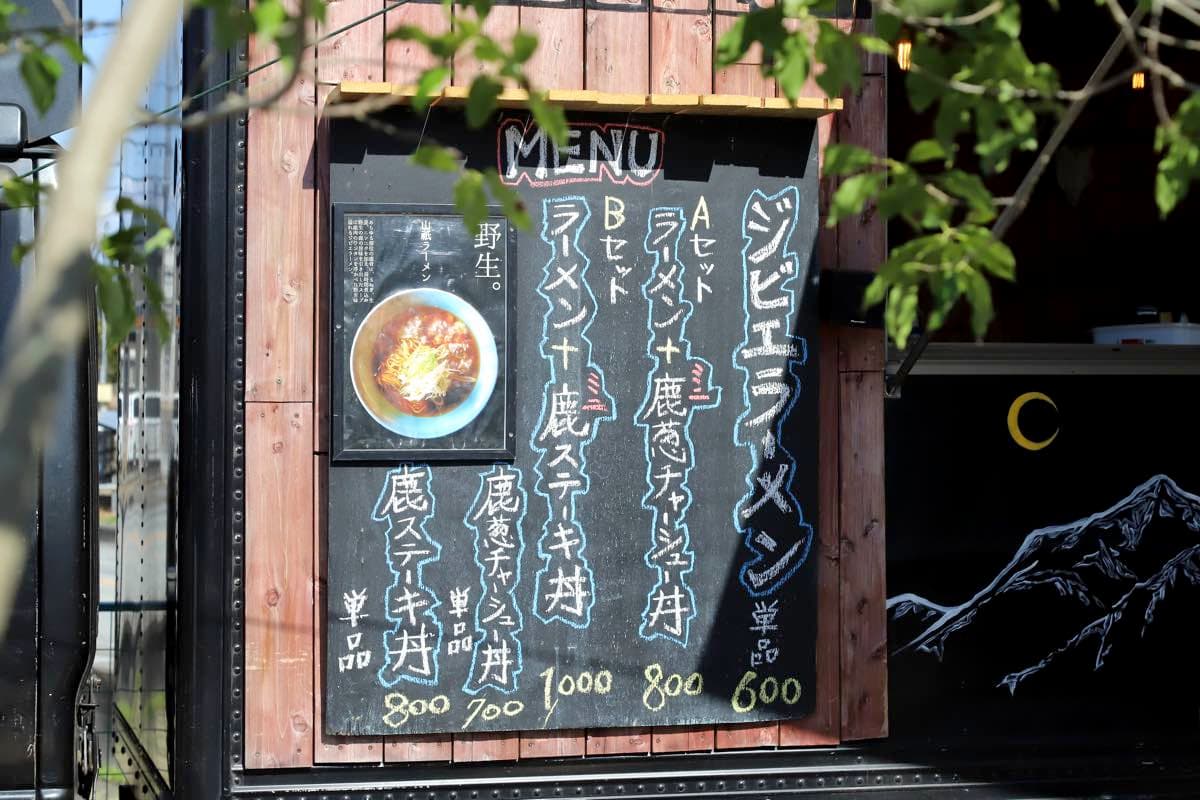 MENU
ジビエラーメン 単品
600
Aセット
ラーメン+ミニ鹿葱チャーシュー丼
800
Bセット
ラーメン+ミニ鹿ステーキ丼
1000
鹿葱チャーシュー丼 単品
700
鹿ステーキ丼 単品
800
野生。
山賊ラーメン